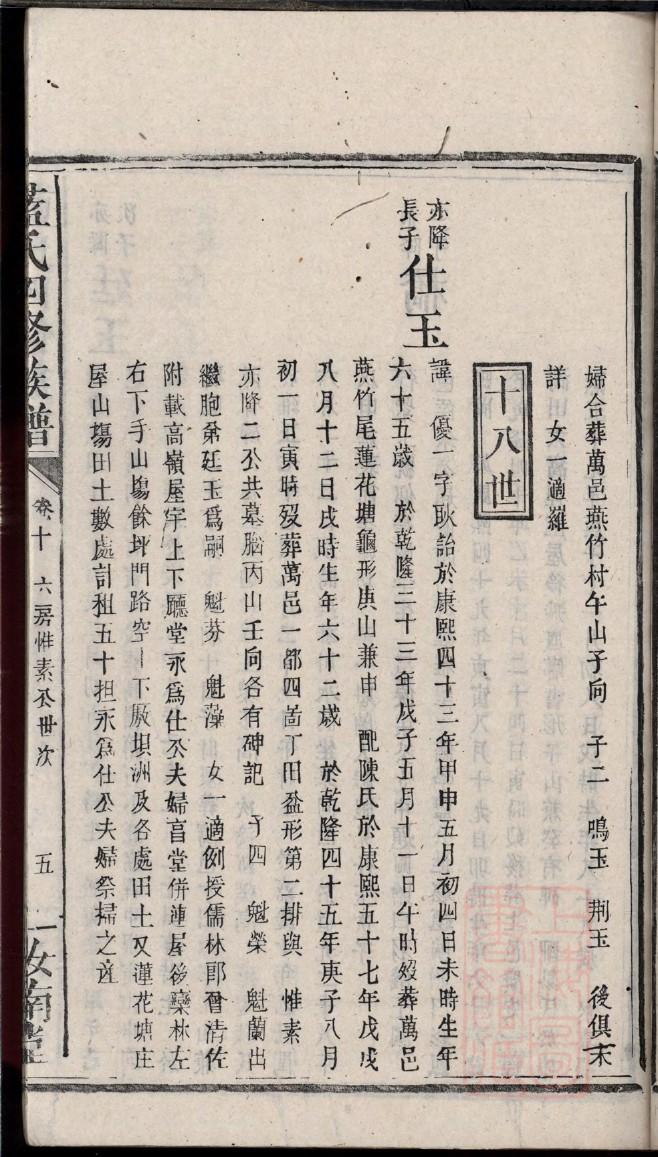 婦合葬萬邑燕竹村午山子向　子二　鳴玉　荆玉　後俱未
詳　女一適羅
十八世
亦降
長子
仕玉
諱　優一字耿詒於康熙四十三年甲申五月初四日未時生年
六十五歲　於乾隆三十三年戊子五月十一日午時歿葬萬邑
燕竹尾蓮花塘龜形庚山兼申　配陳氏於康熙五十七年戊戌
八月十二日戌時生年六十二歲　於乾隆四十五年庚子八月
初一日寅時歿葬萬邑一都四啚丁田盆形第二排與　惟素
亦降二公共墓腦丙山壬向各有碑記　子四　魁榮　魁蘭出
繼胞弟廷玉爲嗣　魁芬　魁藻　女一適例授儒林郎晉清佐
附載高嶺屋宇上下廳堂永爲仕公夫婦享堂併連屋後欒林左
右下手山塲餘坪門路空一下厰垻洲及各處田土又蓮花塘庄
屋山塲田土數處計租五十担永爲仕公夫婦祭掃之產
藍氏四修族譜
卷十　六房惟素公世次
五
汝南堂